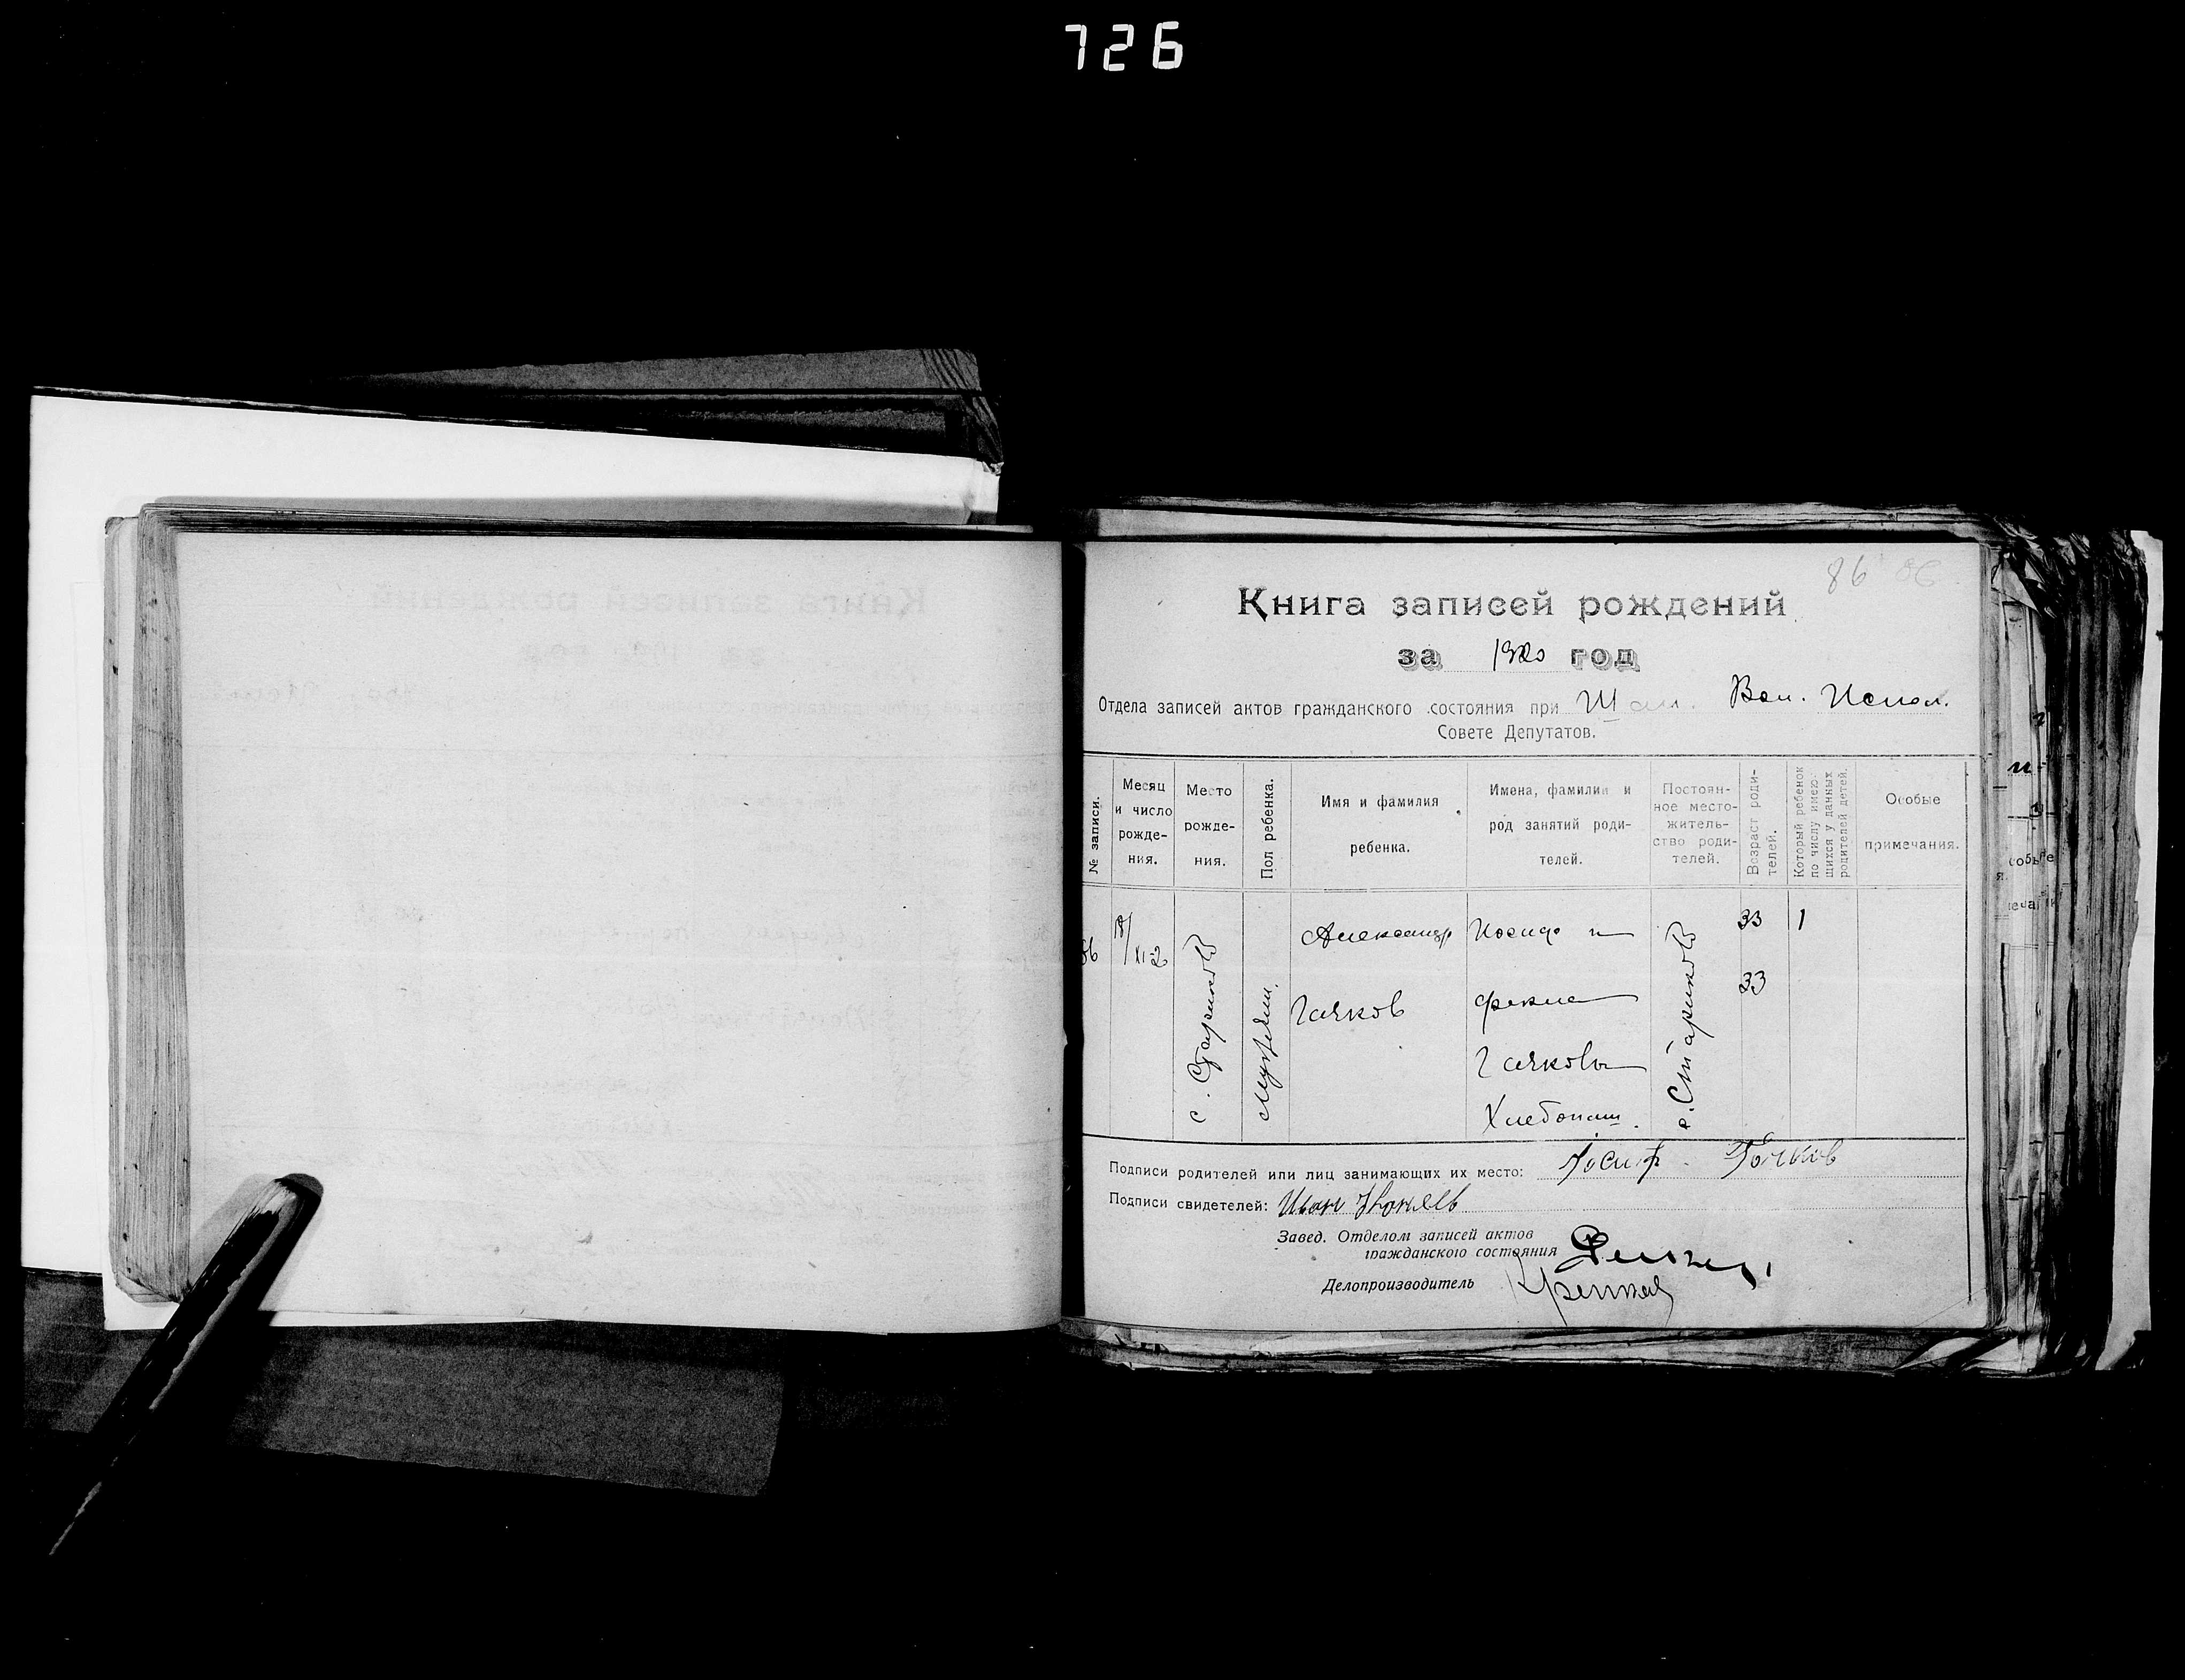 726
86
Книга записей рождений
за 1920 год
Отдела записей актов гражданского состояния при Шам. Вол. Испол.
Совете Депутатов.
№ записи.
Месяц и число рожде-ния.
Место рожде-ния.
Пол ребенка.
Имя и фамилия ребенка.
Имена, фамилии и род занятий роди-телей.
Постоян-ное место-житель-ство роди-телей.
Возраст роди-телей.
Который ребенок по числу имею-щихся у данных родителей детей.
Особые примечания.
86
18/XI-20
с. Стариково
Мужеский.
Александр
Гачков
Иосиф и
Фекла
Гачковы
Хлебопаш.
с. Стариково
33
33
1
Подписи родителей или лиц занимающих их место: Иосиф Гачков
Подписи свидетелей: Иван
Завед. Отделом записей актов
гражданского состояния
Делопроизводитель